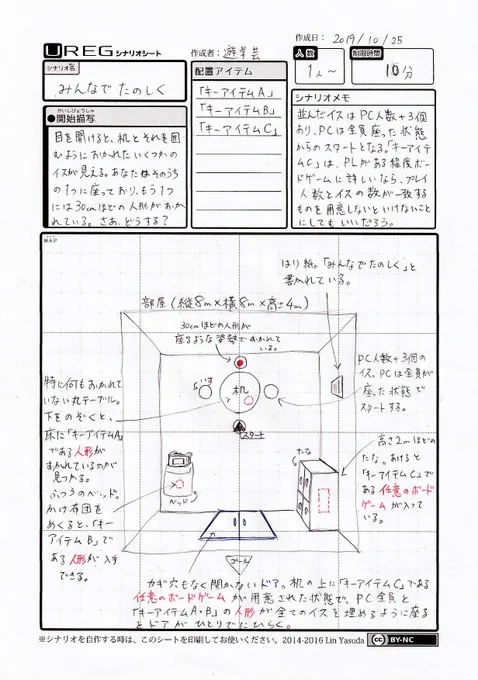 作成日: 2019/10/25
UREG シナリオシート
作成者: 遊学芸
人数
1人～
制限時間
10分
シナリオ名
みんなで たのしく
配置アイテム
「キーアイテムA」
「キーアイテムB」
「キーアイテムC」
●開始描写
目を開けると、机とそれを囲
むようにおかれたいくつかの
イスが見える。あなたはそのうち
の1つに座っており、もう1つ
には30cmほどの人形がおか
れている。さあ、どうする?
シナリオメモ
並んだイスはPC人数+3個
あり、PCは全員座った状態
からのスタートとなる。「キーアイテ
ムC」は、PLがある程度ボー
ドゲームに詳しいなら、プレイ
人数とイスの数が一致する
ものを用意しないといけないこと
にしてもいいだろう。
MAP
はり紙。「みんなでたのしく」と
書かれている。
部屋(縦8m×横8m×高さ4m)
30cmほどの人形が
座るような姿勢でおかれて
いる。
いす
机
スタート
PC人数+3個の
イス。PCは全員が
座った状態で
スタートする。
特に何もおかれて
いない丸テーブル。
下をのぞくと、
床に「キーアイテムA」
である人形が
おかれているのが
見つかる。
ふつうのベッド。
かけ布団を
めくると、「キー
アイテムB」で
ある人形が入手
できる。
ベッド
たな
高さ2mほどの
たな。あけると
「キーアイテムC」で
ある任意のボード
ゲームが入って
いる。
ゴール
カギ穴もなく開かないドア。机の上に「キーアイテムC」である
任意のボードゲームが用意された状態で、PC全員と
「キーアイテムA・B」の人形が全てのイスを埋めるように座る
とドアがひとりでにひらく。
※シナリオを自作する時は、このシートを印刷してお使いください。2014-2016 Lin Yasuda
cc BY-NC